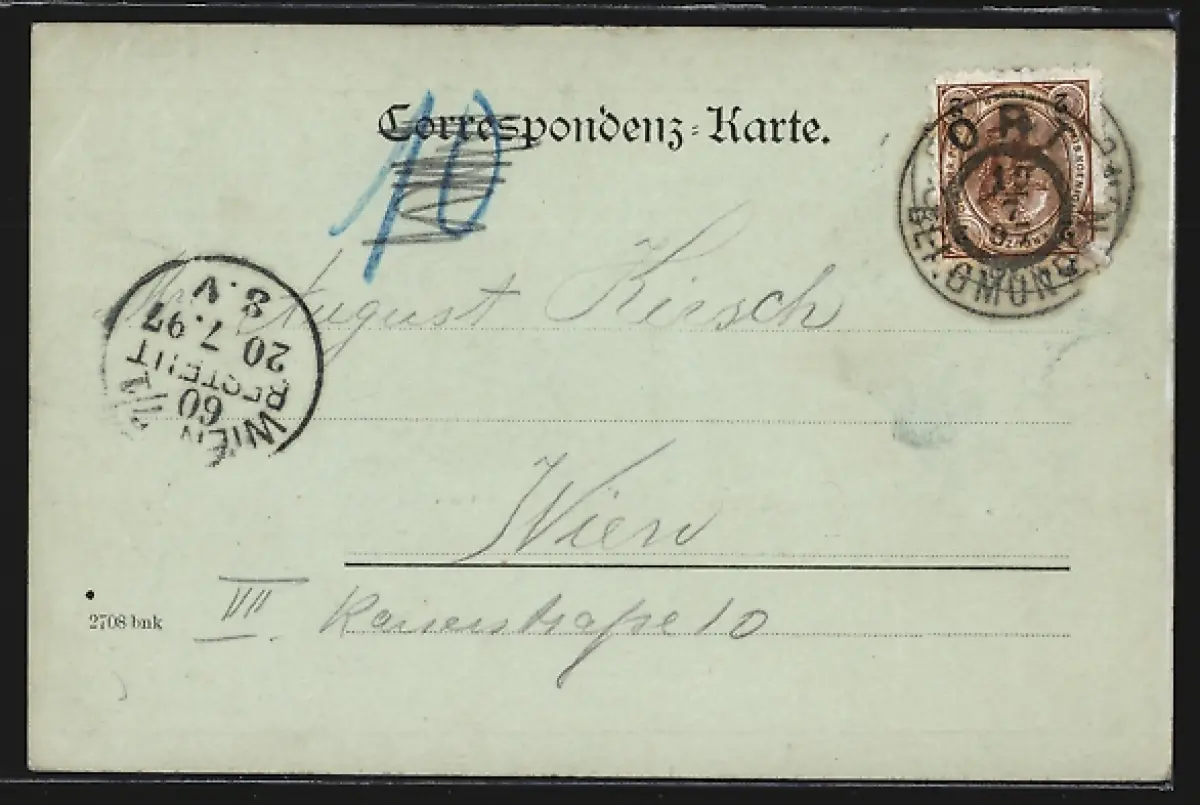 Correspondenz-Karte.
10
ORT
BEI GMUNDEN
2
2
August Kirsch
WIEN
60
BESTELLT
20 7.97
8.V
Wien
VII Kaiserstraße 10
2708 bnk